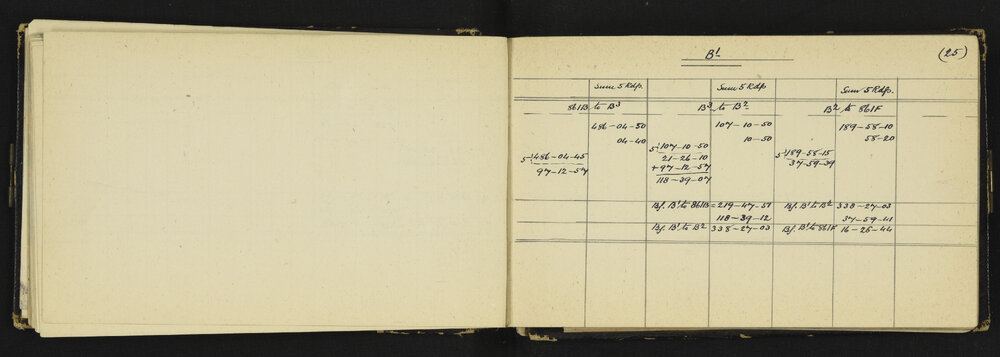 (25)
B¹
Sum 5 Rdgs. Sum 5 Rdgs. Sum 5 Rdgs.
861B to B³ B³ to B² B² to 861F
486-04-50 107-10-50 189-58-10
04-40 10-50 58-20
5)486-04-45 5)107-10-50 5)189-58-15
97-12-57 21-26-10 37-59-39
+97-12-57
118-39-07
Bf. B¹ to 861B = 219-47-51 Bf. B¹ to B² 338-27-03
118-39-12 37-59-41
Bf. B¹ to B² 338-27-03 Bf. B¹ to 861F 16-26-44